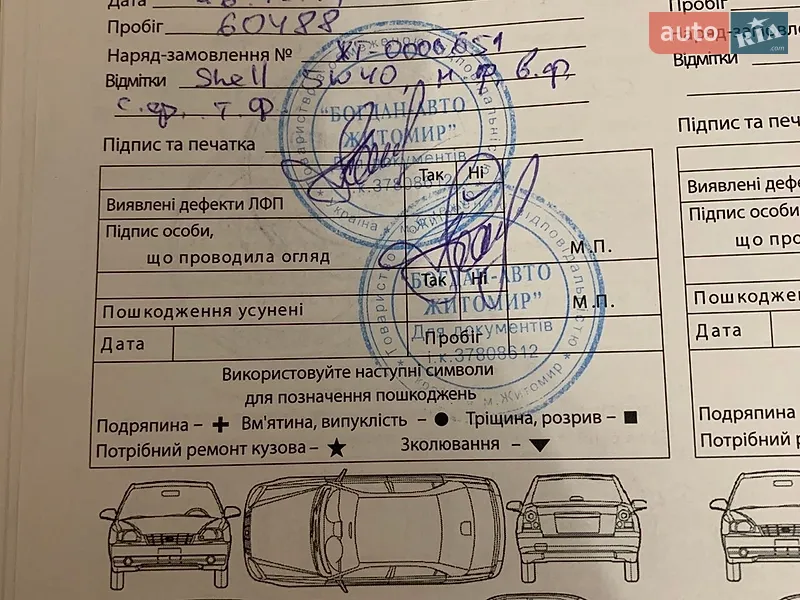 Дата
Пробіг 60488
Наряд-замовлення № ХТ-0000651
Відмітки Shell 5W40, м.ф, в.ф,
с.ф, т.ф
Підпис та печатка
"БОГДАН-АВТО
ЖИТОМИР"
Для документів
і.к.37808612
Україна * м.Житомир
Так Ні
Виявлені дефекти ЛФП
Підпис особи,
що проводила огляд
М.П.
Так Ні
Пошкодження усунені
М.П.
Дата
Пробіг
"БОГДАН-АВТО
ЖИТОМИР"
Для документів
і.к.37808612
Товариство
відповідальністю
м.Житомир
Використовуйте наступні символи
для позначення пошкоджень
Подряпина – Вм'ятина, випуклість – Тріщина, розрив –
Потрібний ремонт кузова – Зколювання –
Пробіг
Наряд-замовлення
Відмітки
Підпис та печат
Виявлені дефе
Підпис особи
що про
Пошкоджен
Дата
Подряпина
Потрібний
auto RIA .com